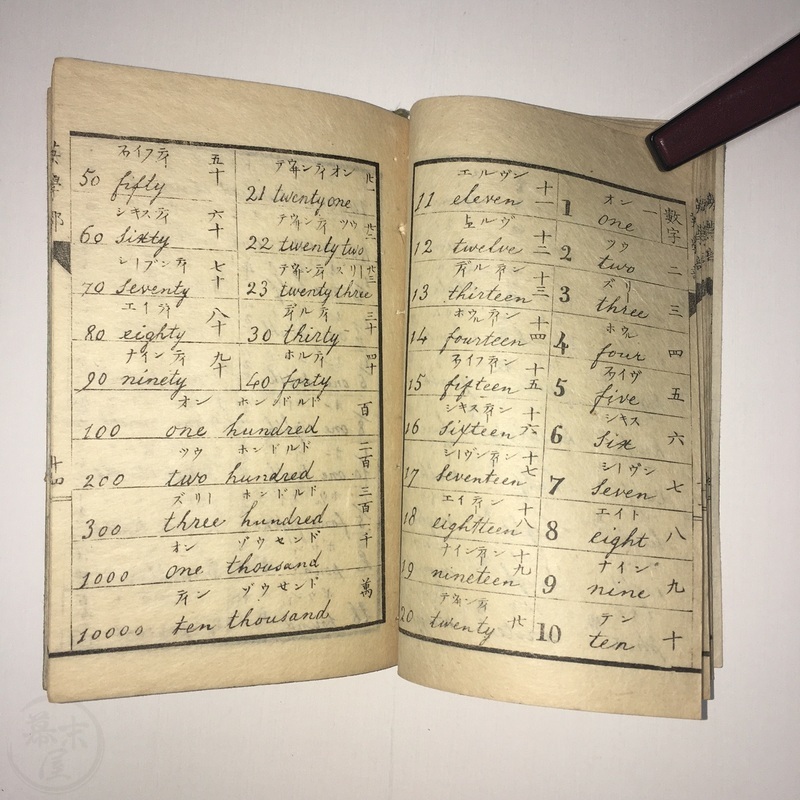 數字
オン
1 one 一
ツウ
2 two 二
ズリ
3 three 三
ホウル
4 four 四
5 five 五
シキス
6 six 六
シーヴン
7 seven 七
エイト
8 eight 八
ナイン
9 nine 九
テン
10 ten 十
エルヴン
11 eleven 十一
12 twelve 十二
13 thirteen 十三
14 fourteen 十四
15 fifteen 十五
シキスティン
16 sixteen 十六
シーヴンティン
17 seventeen 十七
エイティン
18 eighteen 十八
ナインティン
19 nineteen 十九
20 twenty 廿
21 twenty one 廿一
22 twenty two 廿二
23 twenty three 廿三
30 thirty 三十
ホルティ
40 forty 四十
50 fifty 五十
シキスティ
60 sixty 六十
シーブンティ
70 seventy 七十
エイティ
80 eighty 八十
ナインティ
90 ninety 九十
オン ホンドルド
100 one hundred 百
ツウ ホンドルド
200 two hundred 二百
ズリー ホンドルド
300 three hundred 三百
オン ゾウセンド
1000 one thousand 千
ティン ゾウサンド
10000 ten thousand 萬
十四
幕末屋